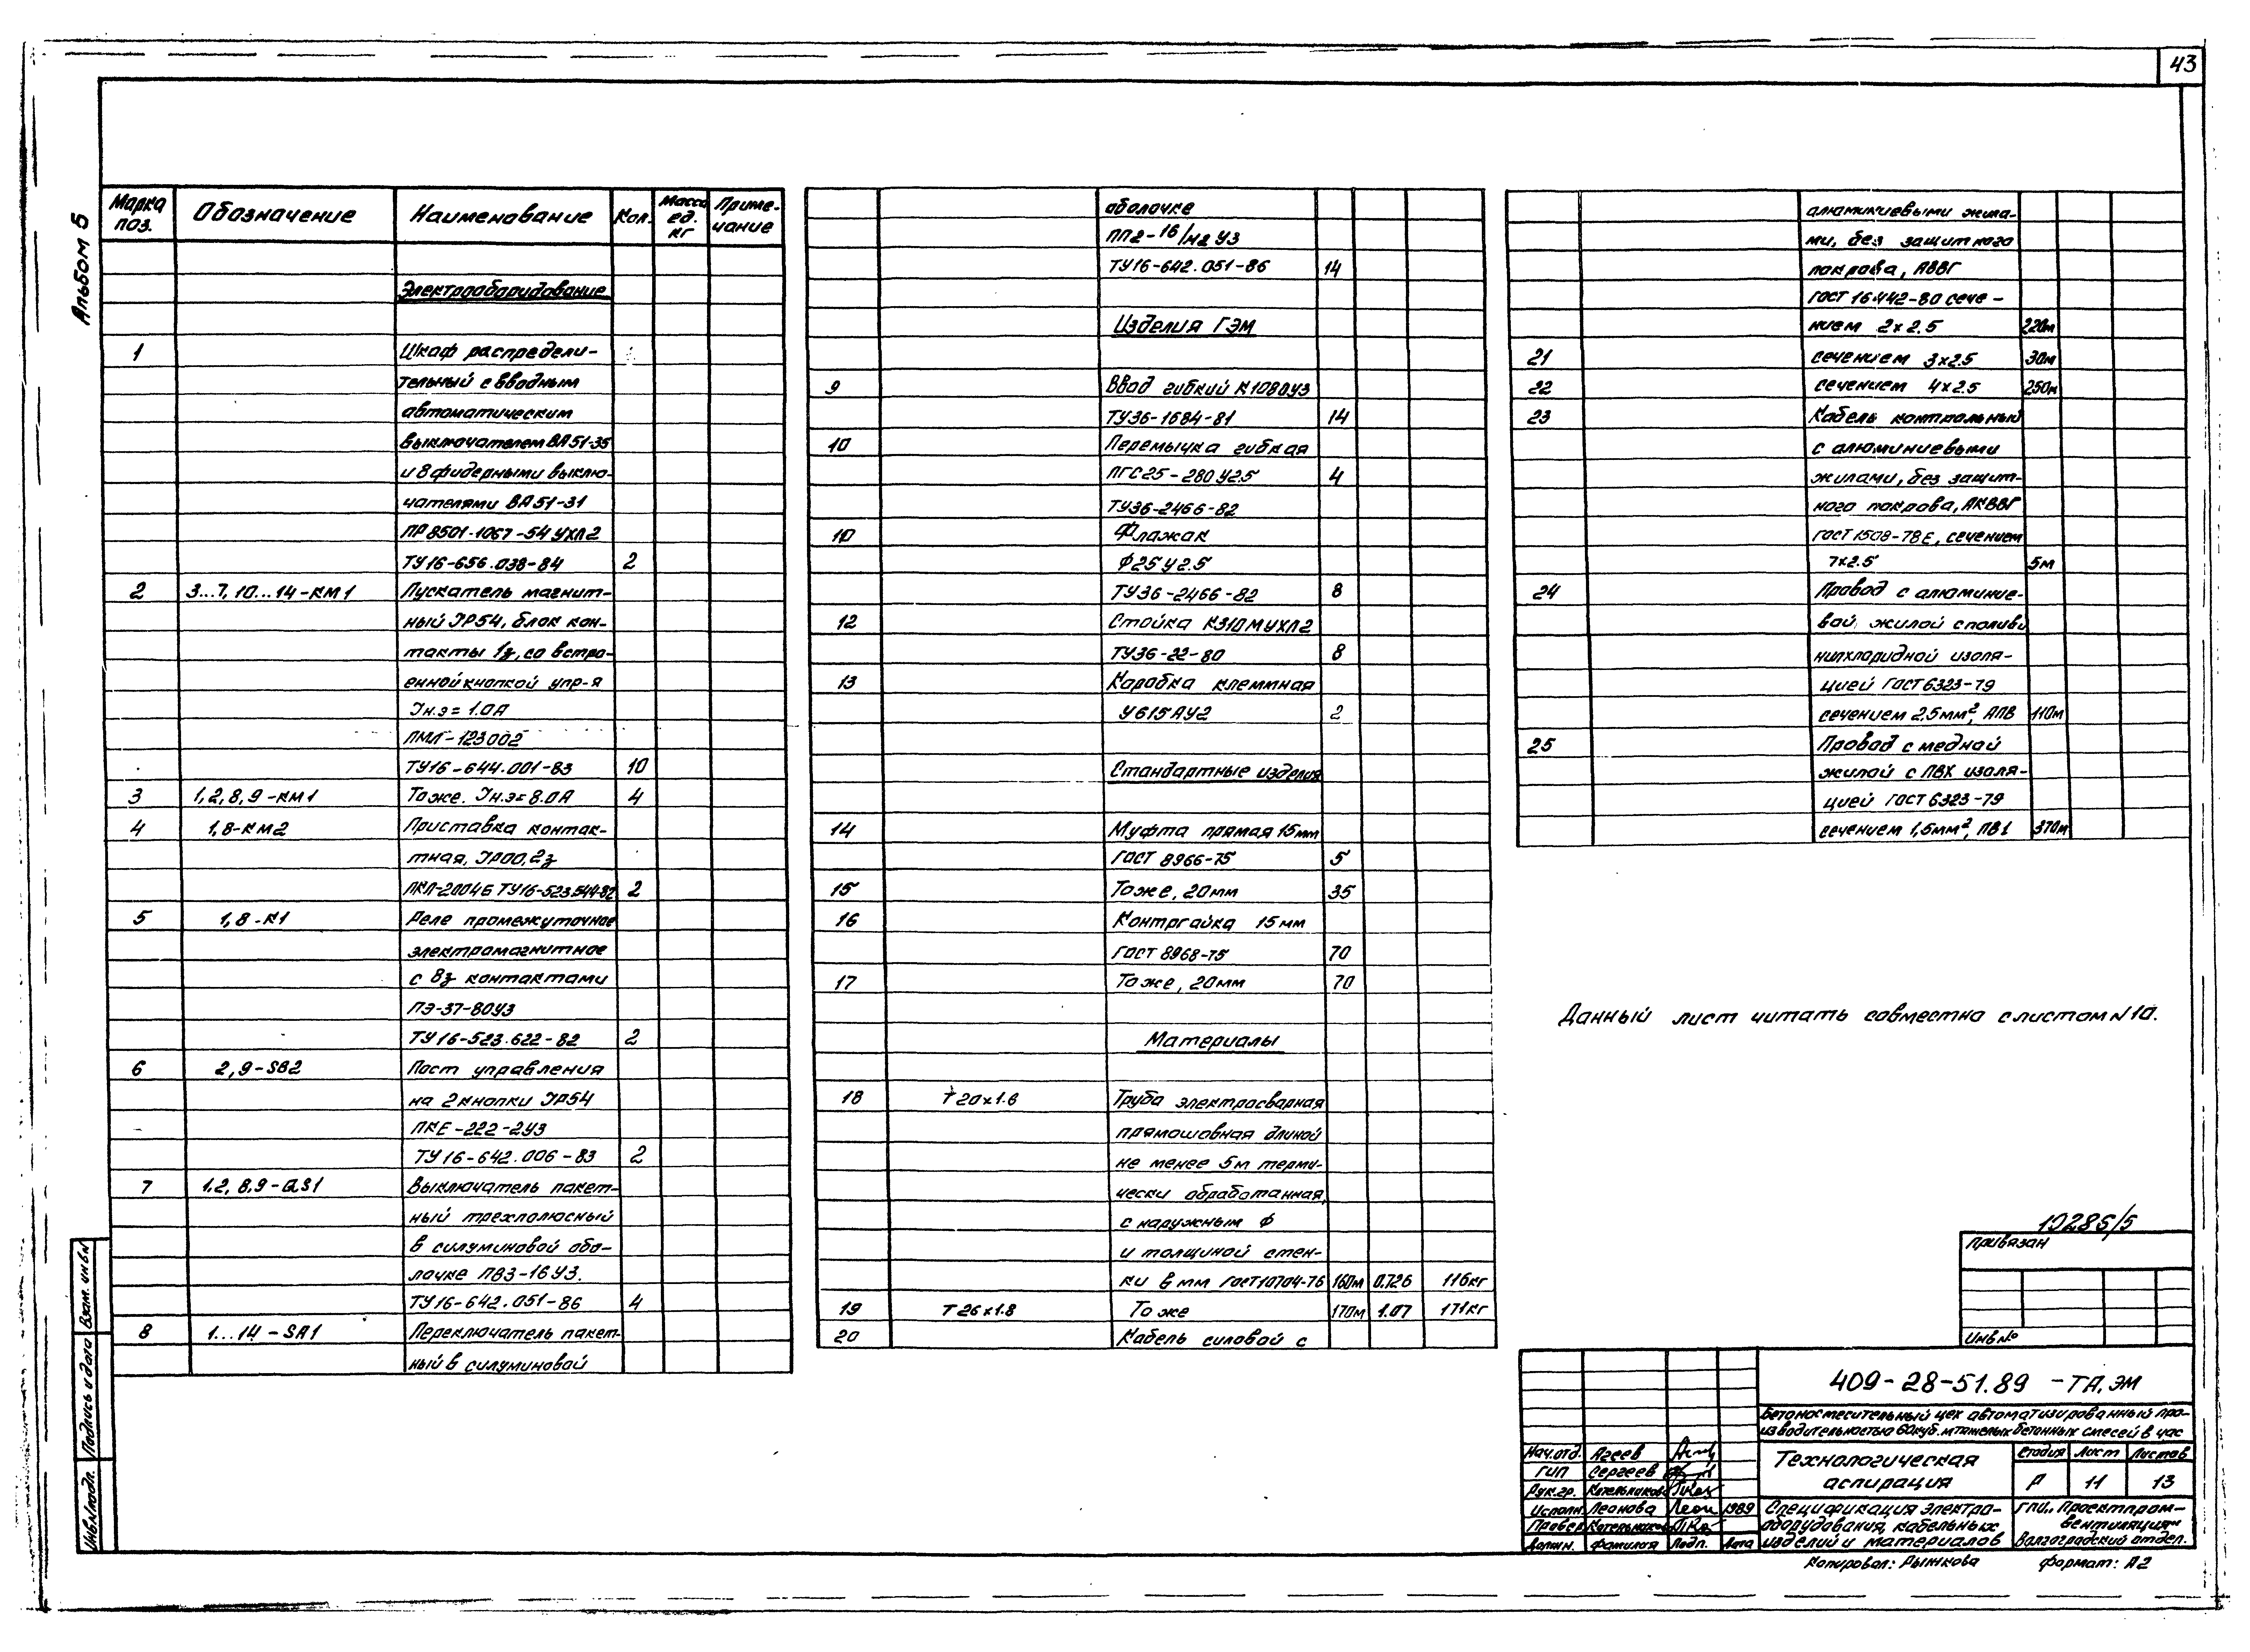 43
Альбом 5
Марка поз. Обозначение Наименование Кол. Масса ед. кг Приме-чание
Электрооборудование
1 Шкаф распредели-
тельный с вводным
автоматическим
выключателем ВА51-35
и 8 фидерными выклю-
чателями ВА51-31
ПР8501-1067-54 УХЛ2
ТУ16-656.038-84 2
2 3...7, 10...14-КМ1 Пускатель магнит-
ный IP54, блок кон-
такты 1з, со встро-
енной кнопкой упр-я
Iн.э= 1.0А
ПМЛ-123002
ТУ16-644.001-83 10
3 1, 2, 8, 9-КМ1 Тоже. Iн.э=8.0А 4
4 1,8-КМ2 Приставка контак-
тная, IP00, 2з
ПКЛ-2004Б ТУ16-523.544-82 2
5 1,8-К1 Реле промежуточное
электромагнитное
с 8з контактами
ПЭ-37-80У3
ТУ16-523.622-82 2
6 2,9-SB2 Пост управления
на 2 кнопки IP54
ПКЕ-222-2У3
ТУ16-642.006-83 2
7 1.2, 8.9-QS1 Выключатель пакет-
ный трехполюсный
в силуминовой обо-
лочке ПВ3-16 У3.
ТУ16-642.051-86 4
8 1...14-SA1 Переключатель пакет-
ный в силуминовой
оболочке
ПП2-16/н2 У3
ТУ16-642.051-86 14
Изделия ГЭМ
9 Ввод гибкий К1080У3
ТУ36-1684-81 14
10 Перемычка гибкая
ПГС25-280 У2.5 4
ТУ36-2466-82
10 Флажок
Ф25У2.5
ТУ36-2466-82 8
12 Стойка К310МУХЛ2
ТУ36-22-80 8
13 Коробка клеммная
У615АУ2 2
Стандартные изделия
14 Муфта прямая 15мм
ГОСТ 8966-75 5
15 Тоже, 20мм 35
16 Контргайка 15мм
ГОСТ 8968-75 70
17 Тоже, 20мм 70
Материалы
18 Т20х1.6 Труба электросварная
прямошовная длиной
не менее 5м терми-
чески обработанная,
с наружным Ф
и толщиной стен-
ки в мм ГОСТ10704-76 160м 0.726 116кг
19 Т26х1.8 Тоже 170м 1.07 171кг
20 Кабель силовой с
алюминиевыми жила-
ми, без защитного
покрова, АВВГ
ГОСТ 16442-80 сече-
нием 2х2.5 220м
21 сечением 3х2.5 30м
22 сечением 4х2.5 250м
23 Кабель контрольный
с алюминиевыми
жилами, без защит-
ного покрова, АКВВГ
ГОСТ 1508-78Е, сечением
7х2.5 5м
24 Провод с алюминие-
вой жилой с поливи
нилхлоридной изоля-
цией ГОСТ 6323-79
сечением 2,5мм², АПВ 110м
25 Провод с медной
жилой с ПВХ изоля-
цией ГОСТ 6323-79
сечением 1,5мм², ПВ1 370м
Данный лист читать совместно с листом N10.
10286/5
Привязан
Инв №
409-28-51.89 -ТА.ЭМ
Бетоносмесительный цех автоматизированный про-
изводительностью 60куб. м тяжелых бетонных смесей в час
Технологическая
аспирация
Стадия Лист Листов
Р 11 13
Спецификация электро-
оборудования, кабельных
изделий и материалов
ГПИ „Проектпром-
вентиляция"
Волгоградский отдел.
Нач.отд. Агеев
ГИП Сергеев
Рук.гр. Котельников
Исполн. Леонова 1989
Провер. Котельников
Должн. Фамилия Подп. Дата
Копировал: Рыжкова Формат: А2
Взам. инв N
Подпись и дата
Инв. N подл.